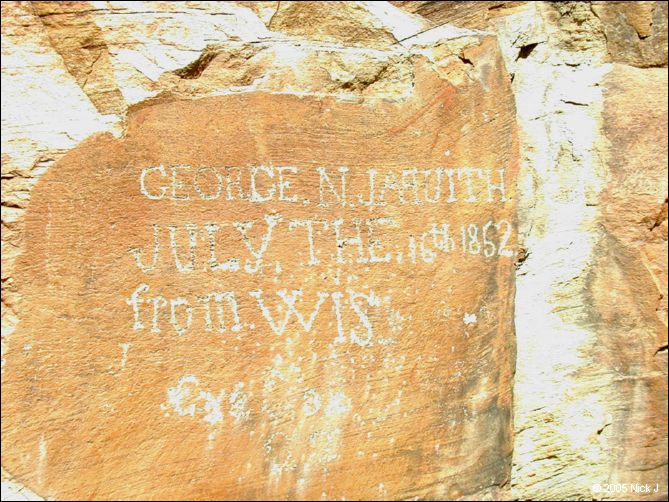 GEORGE. N. JAQUITH.
JULY. THE. 16th 1852
from. WIS
© 2005 Nick J